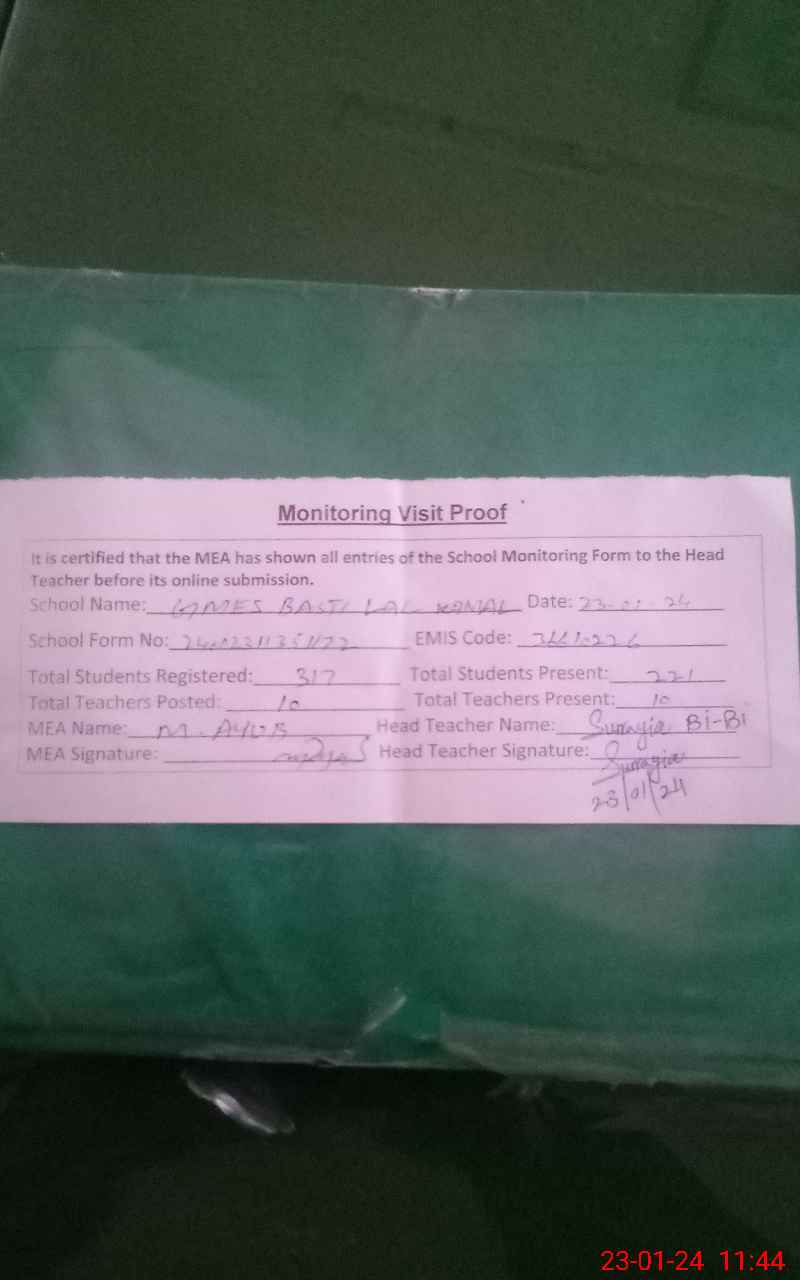 Monitoring Visit Proof
It is certified that the MEA has shown all entries of the School Monitoring Form to the Head
Teacher before its online submission.
School Name: BASTI LAL KAMAL Date: 23-01-24
School Form No: EMIS Code:
Total Students Registered: 317 Total Students Present: 221
Total Teachers Posted: 10 Total Teachers Present: 10
MEA Name: M. AYUB Head Teacher Name: Surayia Bi-Bi
MEA Signature: Head Teacher Signature: Surayia
23/01/24
23-01-24 11:44